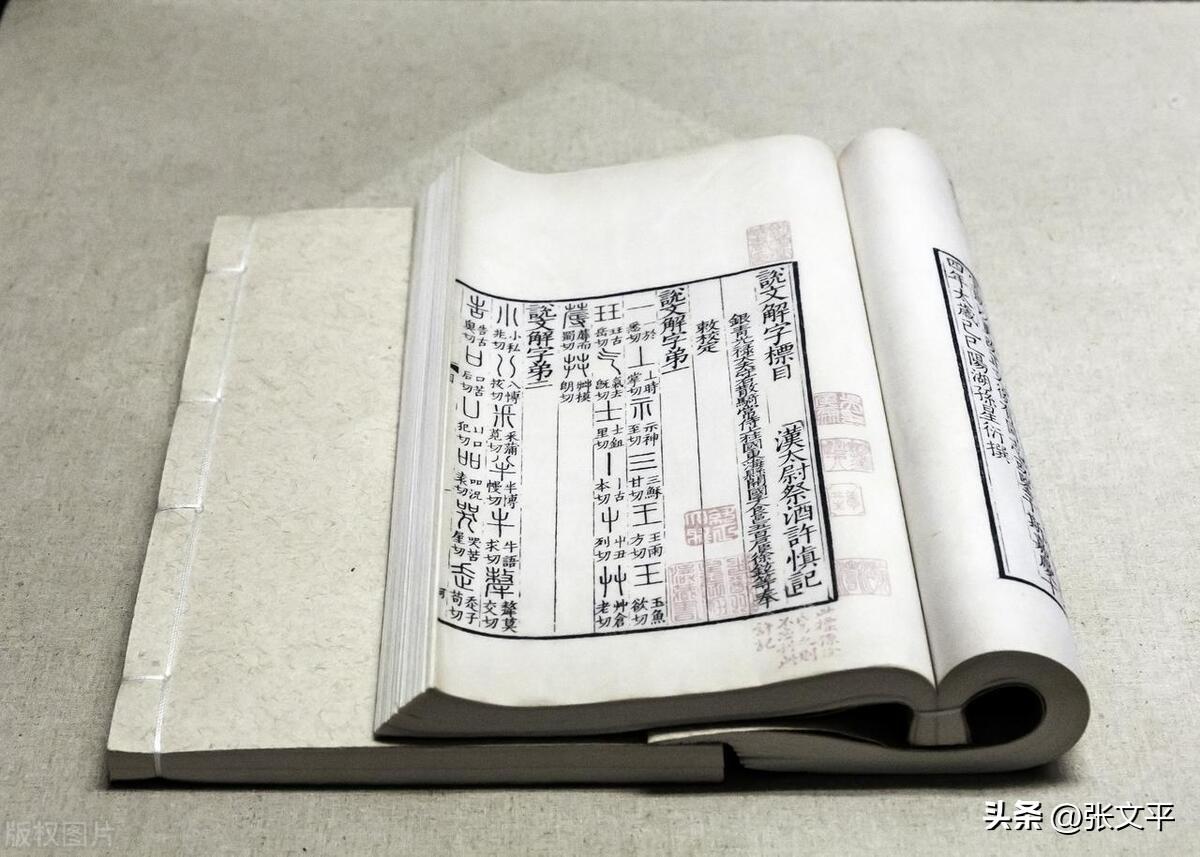 四年太歲己巳陽湖孫星衍撰
說文解字標目 漢太尉祭酒許慎記
銀青光祿大夫守右散騎常侍上柱國東海縣開國子食邑五百戶徐鉉等奉
敕校定
說文解字弟一
一於悉切 丄時掌切 示神至切 三穌甘切 王雨方切 玉魚欲切
玨古岳切 气去旣切 士鉏里切 丨古本切 屮丑列切 艸倉老切
蓐而蜀切 茻模朗切
說文解字弟二
小私兆切 八博拔切 釆蒲莧切 半博幔切 牛語求切 犛莫交切
告古奧切 口苦后切 凵口犯切 吅況袁切 哭苦屋切 走子苟切
版权图片
头条 @张文平